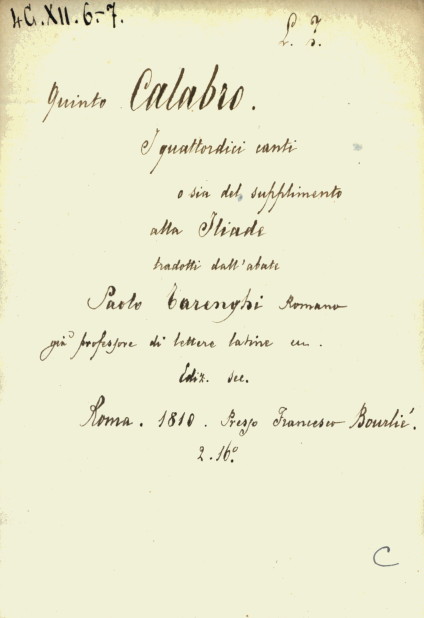 4G.XII.6-7.
L. I.
Quinto Calabro.
I quattordici canti
o sia del supplimento
alla Iliade
tradotti dall'abate
Paolo Tarenghi Romano
già professore di lettere latine ec.
Ediz. sec.
Roma. 1810. Presso Francesco Bourlié.
2. 16°
C